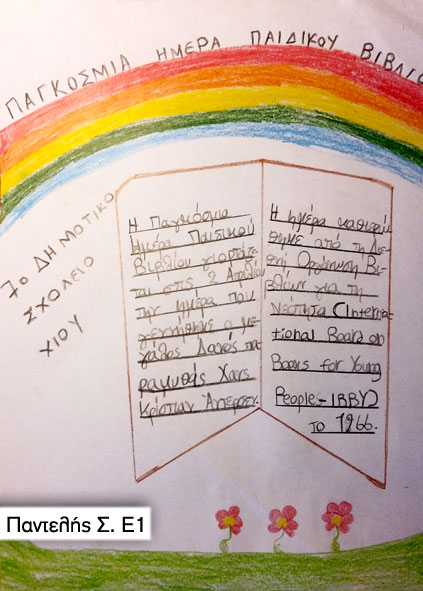 ΠΑΓΚΟΣΜΙΑ ΗΜΕΡΑ ΠΑΙΔΙΚΟΥ ΒΙΒΛΙΟ
7ο ΔΗΜΟΤΙΚΟ
ΣΧΟΛΕΙΟ
ΧΙΟΥ
Η Παγκόσμια
Ημέρα Παιδικού
Βιβλίου γιορτάζε-
ται στις 2 Απριλίου
την ημέρα που
γεννήθηκε ο με-
γάλος Δανός πα-
ραμυθάς Χανς
Κρίστιαν Άντερσεν.
Η ημέρα καθιερώ-
θηκε από τη Διε-
θνή Οργάνωση Βι-
βλίων για τη
Νεότητα (Interna-
tional Board on
Books for Young
People-IBBY)
το 1966.
Παντελής Σ. Ε1